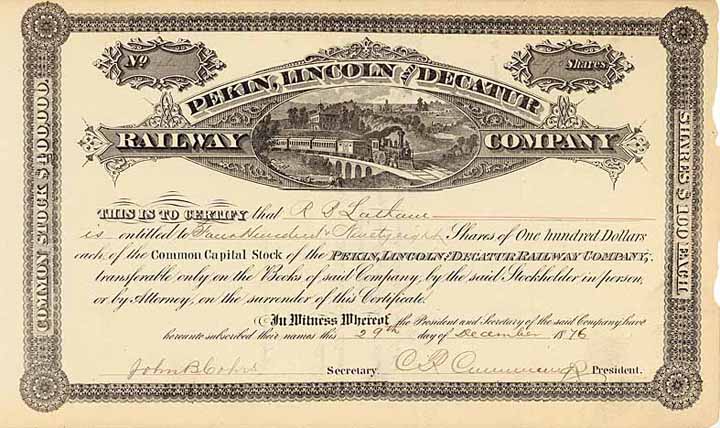 No
Shares
PEKIN, LINCOLN AND DECATUR
RAILWAY COMPANY
COMMON STOCK $400,000.
SHARES $100 EACH
THIS IS TO CERTIFY that R B Latham
is entitled to Four Hundred & Ninety eight Shares of One hundred Dollars
each, of the Common Capital Stock of the PEKIN, LINCOLN AND DECATUR RAILWAY COMPANY,
transferable only on the Books of said Company, by the said Stockholder in person,
or by Attorney, on the surrender of this Certificate.
In Witness Whereof the President and Secretary of the said Company have
hereunto subscribed their names this 29th day of December 1876
John B Cohrs Secretary. C R Cummings President.